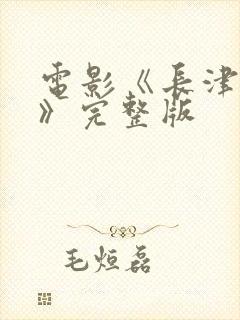 電影《長津
》完整版
毛烜磊